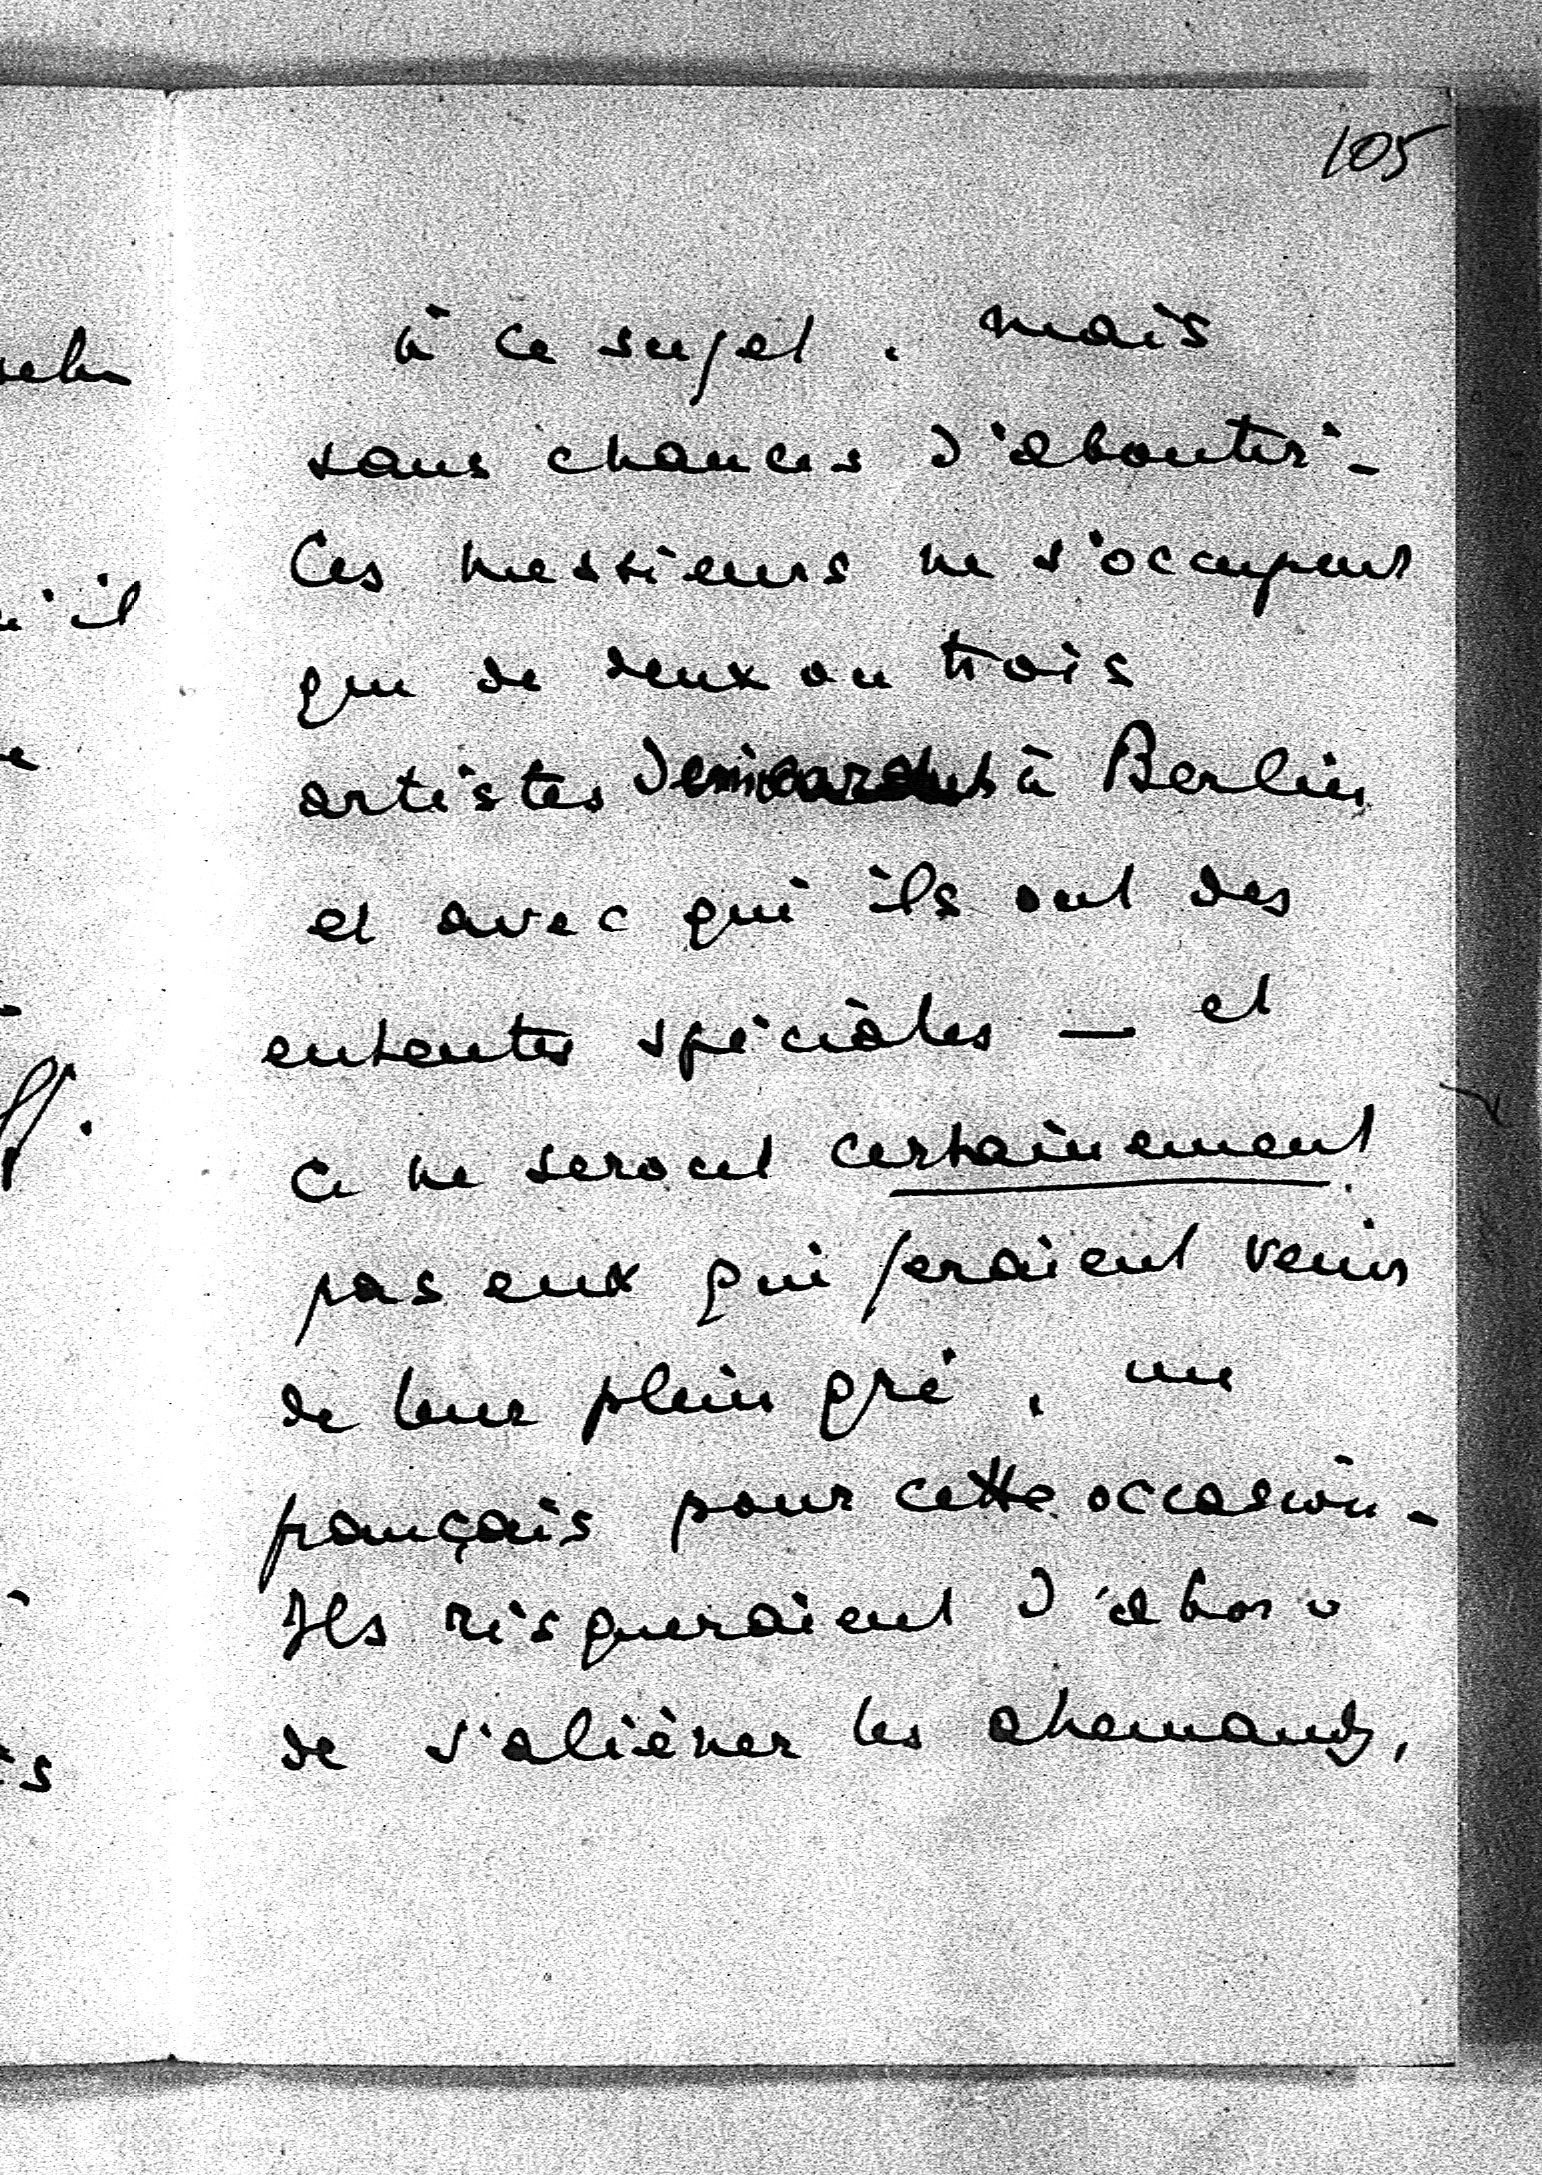 105
à ce sujet. mais
sans chances d'aboutir -
Ces messieurs ne s'occupent
que de deux ou trois
artistes à Berlin
et avec qui ils ont des
ententes spéciales — et
ce ne seront certainement
pas eux qui feraient venir
de leur plein gré, un
français pour cette occasion -
Ils risqueraient d'abord
de s'aliéner les allemands,